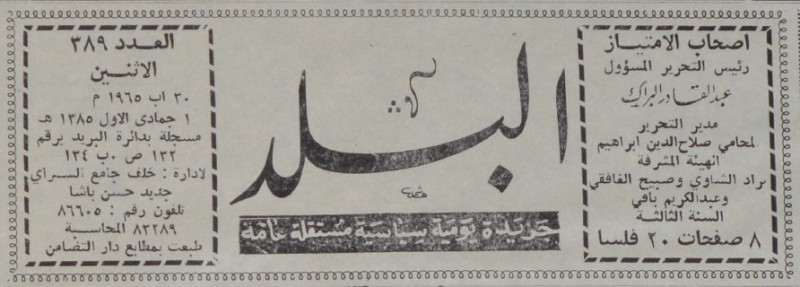 اصحاب الامتياز
رئيس التحرير المسؤول
عبدالقادر البراك
مدير التحرير
لمحامي صلاح الدين ابراهيم
الهيئة المشرفة
براد الشاوي وصبيح الغافقي
وعبدالكريم باقي
السنة الثالثة
٨ صفحات ٢٠ فلسا
البلد
جريدة يومية سياسية مستقلة عامة
العدد ٣٨٩
الاثنين
٣٠ اب ١٩٦٥ م
١ جمادى الاول ١٣٨٥ هـ
مسجلة بدائرة البريد برقم
١٣٢ ص ٠ب ١٣٤
لادارة : خلف جامع السراي
جديد حسن باشا
تلفون رقم : ٨٦٦٠٥
٨٣٢٨٩ المحاسبة
طبعت بمطابع دار التضامن